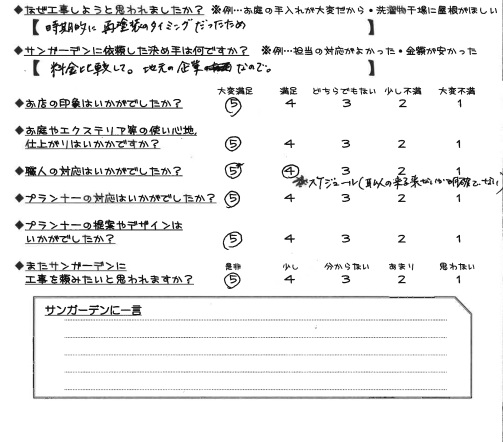 ◆なぜ工事しようと思われましたか？ ※例…お庭の手入れが大変だから・洗濯物干場に屋根がほしい
【 時期的に再塗装のタイミングだったため 】
◆サンガーデンに依頼した決め手は何ですか？ ※例…担当の対応がよかった・金額が安かった
【 料金と比較して。地元の企業なので。 】
大変満足 満足 どちらでもない 少し不満 大変不満
◆お店の印象はいかがでしたか？ 5 4 3 2 1
◆お庭やエクステリア等の使い心地、
仕上がりはいかかですか？ 5 4 3 2 1
◆職人の対応はいかがでしたか？ 5 4 3 2 1
※スケジュール(職人の来る来ないが明確でない)
◆プランナーの対応はいかがでしたか？ 5 4 3 2 1
◆プランナーの提案やデザインは
いかがでしたか？ 5 4 3 2 1
是非 少し 分からない あまり 思わない
◆またサンガーデンに
工事を頼みたいと思われますか？ 5 4 3 2 1
サンガーデンに一言